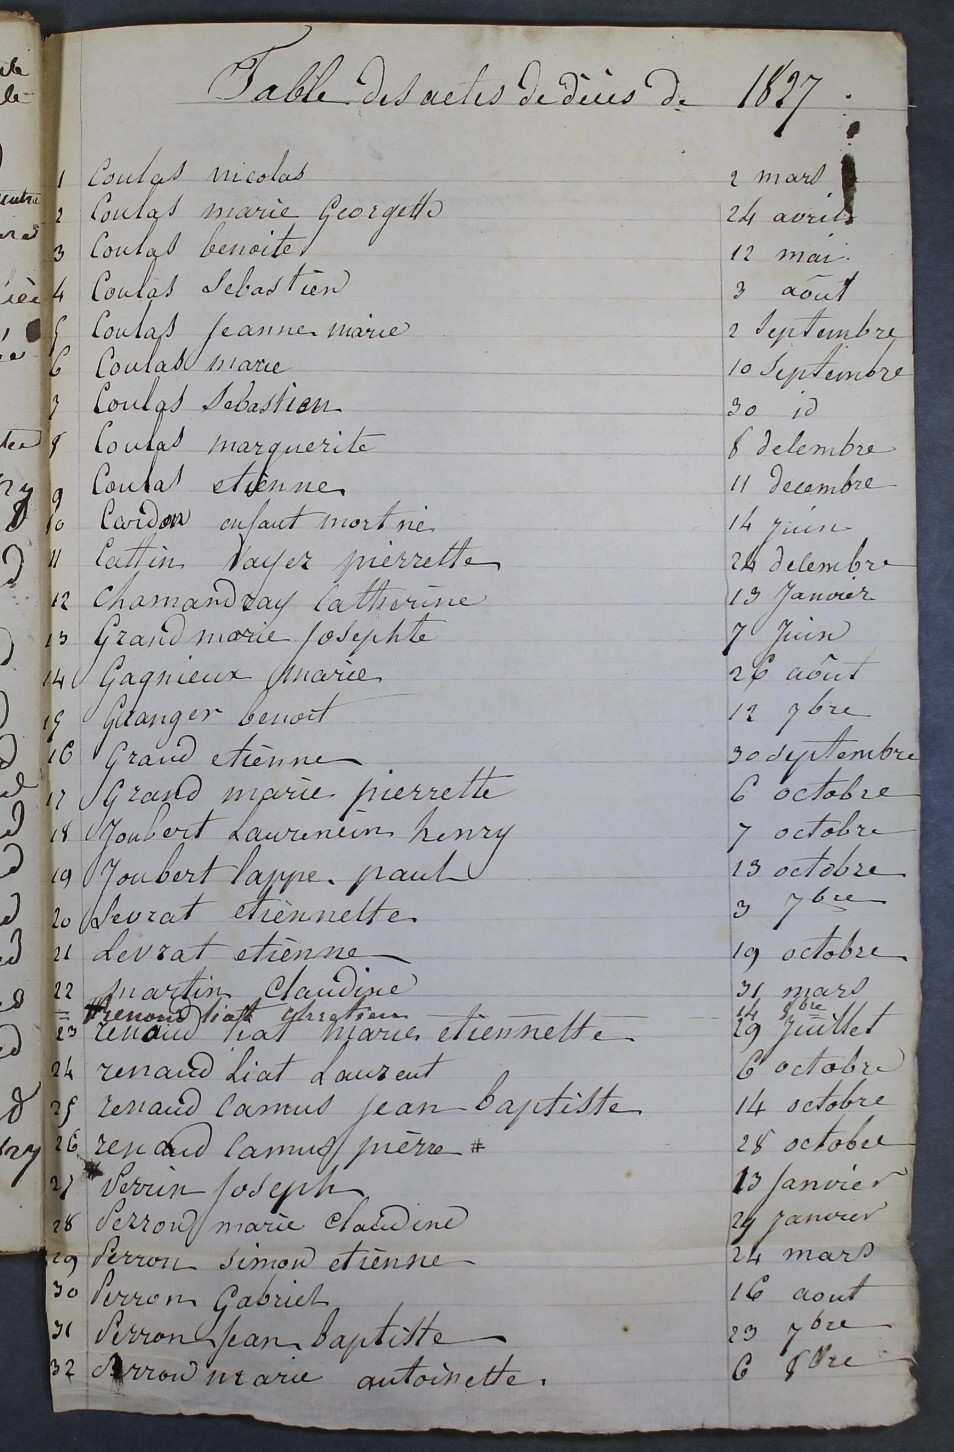 Table des actes de décès de 1827
1 Coulas nicolas 2 mars
2 Coulas marie Georgette 24 avril
3 Coulas benoite 12 mai
4 Coulas Sebastien 3 août
5 Coulas jeanne marie 2 Septembre
6 Coulas marie 10 Septembre
7 Coulas Sebastien 30 id
8 Coulas marguerite 8 decembre
9 Coulas etienne 11 decembre
10 Cardon enfant mort né 14 juin
11 Cattin Vayez pierrette 24 decembre
12 Chamandray Catherine 13 Janvier
13 Grand marie josephte 7 Juin
14 Gagnieux marie 26 août
15 Granger benoit 12 7bre
16 Grand etienne 30 septembre
17 Grand marie pierrette 6 octobre
18 Joubert Laurencin henry 7 octobre
19 Joubert lappe paul 13 octobre
20 Levrat etiennette 3 7bre
21 Levrat etienne 19 octobre
22 martin Claudine 31 mars
= renaud liat 14 8bre
23 renaud liat marie etiennette 29 Juillet
24 renaud Liat Laurent 6 octobre
25 renaud Camus jean baptiste 14 octobre
26 renaud Camus pierre # 28 octobre
27 Perrin Joseph 13 Janvier
28 Perron marie Claudine 29 janvier
29 Perron simon etienne 24 mars
30 Perron Gabriel 16 aout
31 Perron jean baptiste 23 7bre
32 Perron marie antoinette. 6 8bre